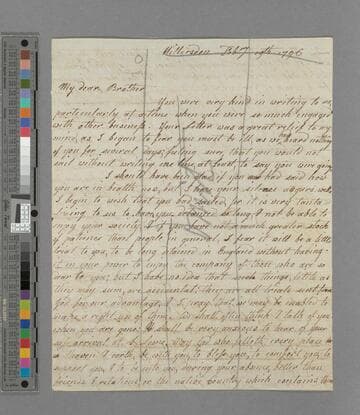 Willersden Feby 19th 1796
My dear Brother
You were very kind in writing to us,
particularly at a time when you were so much engaged
with other business. Your letter was a great relief to my
mind, as I began to fear you must be ill, as we heard nothing
of you for several days, feeling sure that you would not
sail without writing one line, at least, to say you were going
I should have been glad if you had said how
you are in health now, but I hope your silence augurs well.
I begin to wish that you had sailed, for it is very
to us to have you so long, & not be able to
enjoy your society. If you have not a much greater stock
of patience than people in general, I fear it will be a little
trial to you, to be long detained in England without having
it in your power to enjoy the company of those who are so
dear to you; but I have no idea that these things, little as
they may seem, are accidental; they are all trials sent from
God for our advantage, & I pray that we may be enabled to
make a right use of them. We shall often think & talk of you
when you are gone. & shall be very anxious to hear of your
safe arrival at May God who filleth every place
in Heaven & earth, be with you, to bless you, to comfort you, to
support you, & to be unto you, during your absence, better than
friends & relations, or the native country which contains them